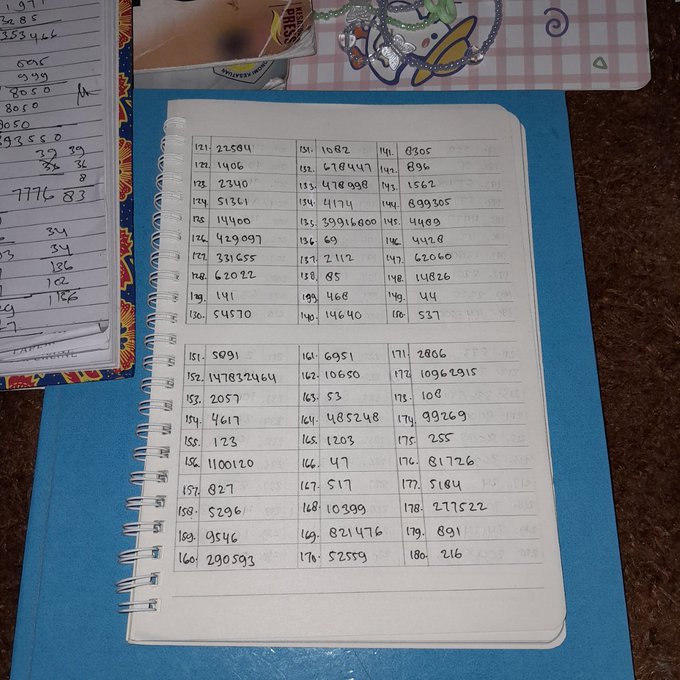 1971
3285
353466
695
999
8050
8050
8050
393550
39 39
33 36
8
7776 83
34
34
136
102
136
PRESS
121. 22584 131. 1082 141. 8305
122. 1406 132. 678447 142. 896
123. 2340 133. 478998 143. 1562
124. 51361 134. 4174 144. 899305
125. 14400 135. 39916800 145. 4489
126. 429097 136. 69 146. 4428
127. 331655 137. 2112 147. 62060
128. 62022 138. 85 148. 14826
129. 141 199. 468 149. 44
130. 54570 140. 14640 150. 537
151. 5891 161. 6951 171. 2806
152. 147832464 162. 10650 172. 10962915
153. 2057 163. 53 173. 108
154. 4617 164. 485248 174. 99269
155. 123 165. 1203 175. 255
156. 1100120 166. 47 176. 81726
157. 827 167. 517 177. 5184
158. 5296 168. 10399 178. 277522
159. 9546 169. 821476 179. 891
160. 290593 170. 52559 180. 216